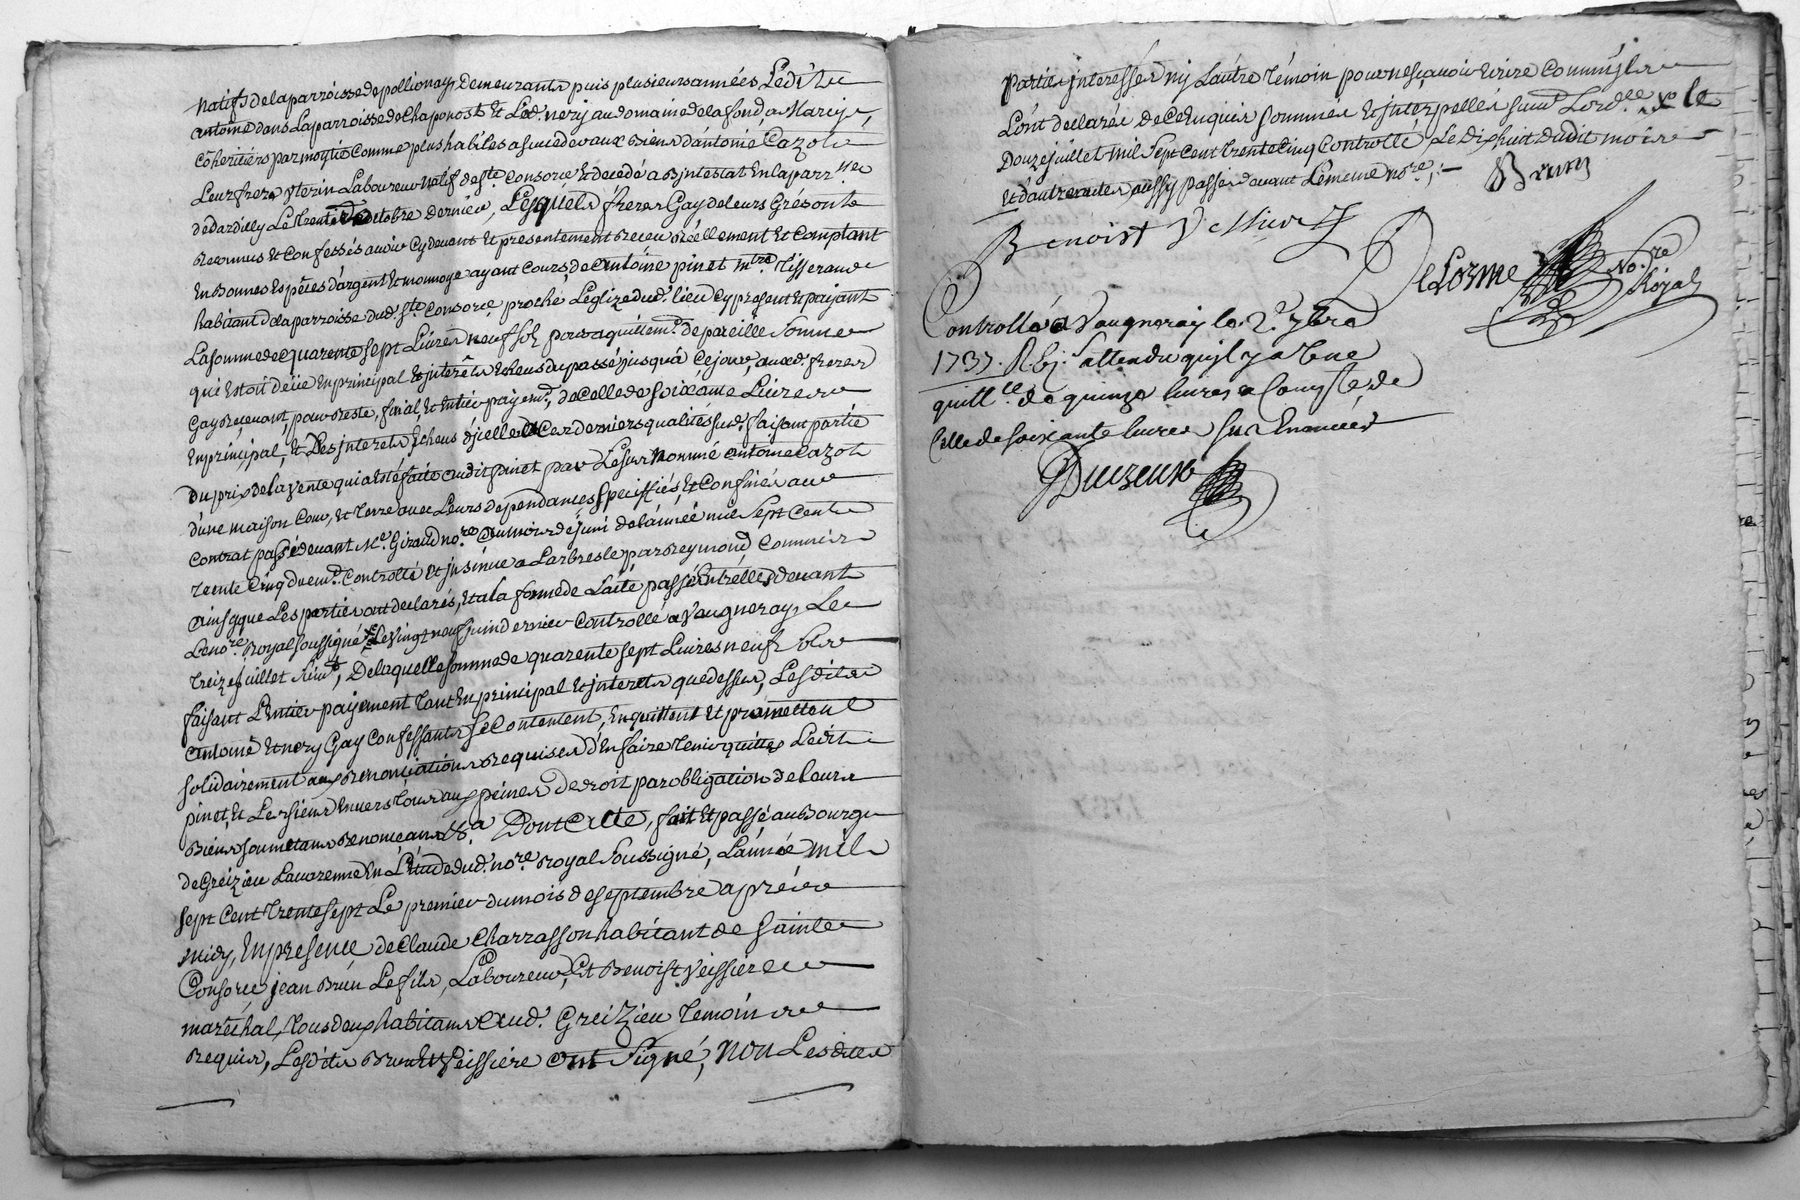 natifs de la parroisse de pollionay, demeurants puis plusieurs années, Ledit
antoine dans Laparroisse de Chaponost & Led. nery au domaine de la fond, a Marcy,
Coheritiers par moytié Comme plus habiles a succeder aux Biens d'antoine Cazot
Leur frere vterin Laboureur natif de ste Consorce & decedé abjntestat En la parr.sse
de dardilly Le trente octobre dernier, Lesquels freres Gay de leurs Grés ont
Reconnus Et Confessés avoir Cy devant Et presentement Receu Réellement Et Comptant
En Bonnes Espèces d'argent Et monnoye ayant Cours, de antoine pinet mtre tisserand
habitant de la parroisse dud. ste Consorce proche L'eglise dud. lieu Cy present Et payant
La somme de quarente sept Livres neuf sols pour aquittemt. de pareille Somme
qui Estoit deüe En principal & jnterêts Echeus du passé jusqu'à Ce jour, auxd. freres
Gay Recevant, pour Reste, final, Et Entier payemt, de Celle de soixante Livres
En principal, Et Les jnterets Echeus d'jcelle Ces derniers qualités sud. faisant partie
Du prix de la vente qui a Eté faite audit pinet par Le sus Nommé antoine Cazot
d'une maison Cour, Et Terre avec Leurs dependances speciffiés, Et Confinés au
Contrat passé devant Me. Giraud nore. au mois de juin de l'année mil Sept Cent
trente Cinq duemt. Controllé Et jnsinué a Larbresle par Reymond Commis
ainsy que Les parties ont declarés, Et a la forme de L'acte passé Entrelles devant
Le nore. Royal soussigné Le vingt neuf juin dernier Controllé a Vaugneray, Le
treize juillet suivt, De laquelle somme de quarente sept Livres neuf sols
faisant L'entier payement tant En principal Et jnterets que dessus, Lesdits
antoine Et nery Gay Confessants se Contentent, En quittent Et promettent
solidairement aux Renonciations Requises d'En faire tenir quitte Ledit
pinet, Et Les siens Envers tous aux peines de droit par obligation de leurs
Biens soumetans Renonceans &a. Dont acte, fait Et passé au Bourg
de Greizieu Lavarenne En L'étude dud. nore. Royal Soussigné, L'année mil
sept Cent trente sept Le premier du mois de septembre aprés
midy, En presence de Claude Charrasson habitant de Sainte
Consorce, jean Brun Le fils, Laboureur, Et Benoist Veissiere
maréchal tous deux habitans aud. Greizieu temoins
Requis, Lesdits Brun Et Veissiere ont signé, non Lesdites
Parties jnteressées ny L'autre témoin pour ne sçavoir Ecrire Comm'jls
L'ont declarés de Ce Enquis sommés Et jnterpellés suivt L'ordce. x le
Douze juillet mil sept Cent trente Cinq Controllé Le dixhuit dudit mois
Et d'autre actes aussy passés devant Le meme nore ;-
Brun
Benoist Vessiere
Delorme No.re
Royal
Controllé a Vaugneray le 2e 7bre
1737. R. 6s. attendu qu'jl y a Une
quittce de quinze livres a Compte de
Celle de soixante livres sus Enoncée
Duizeux